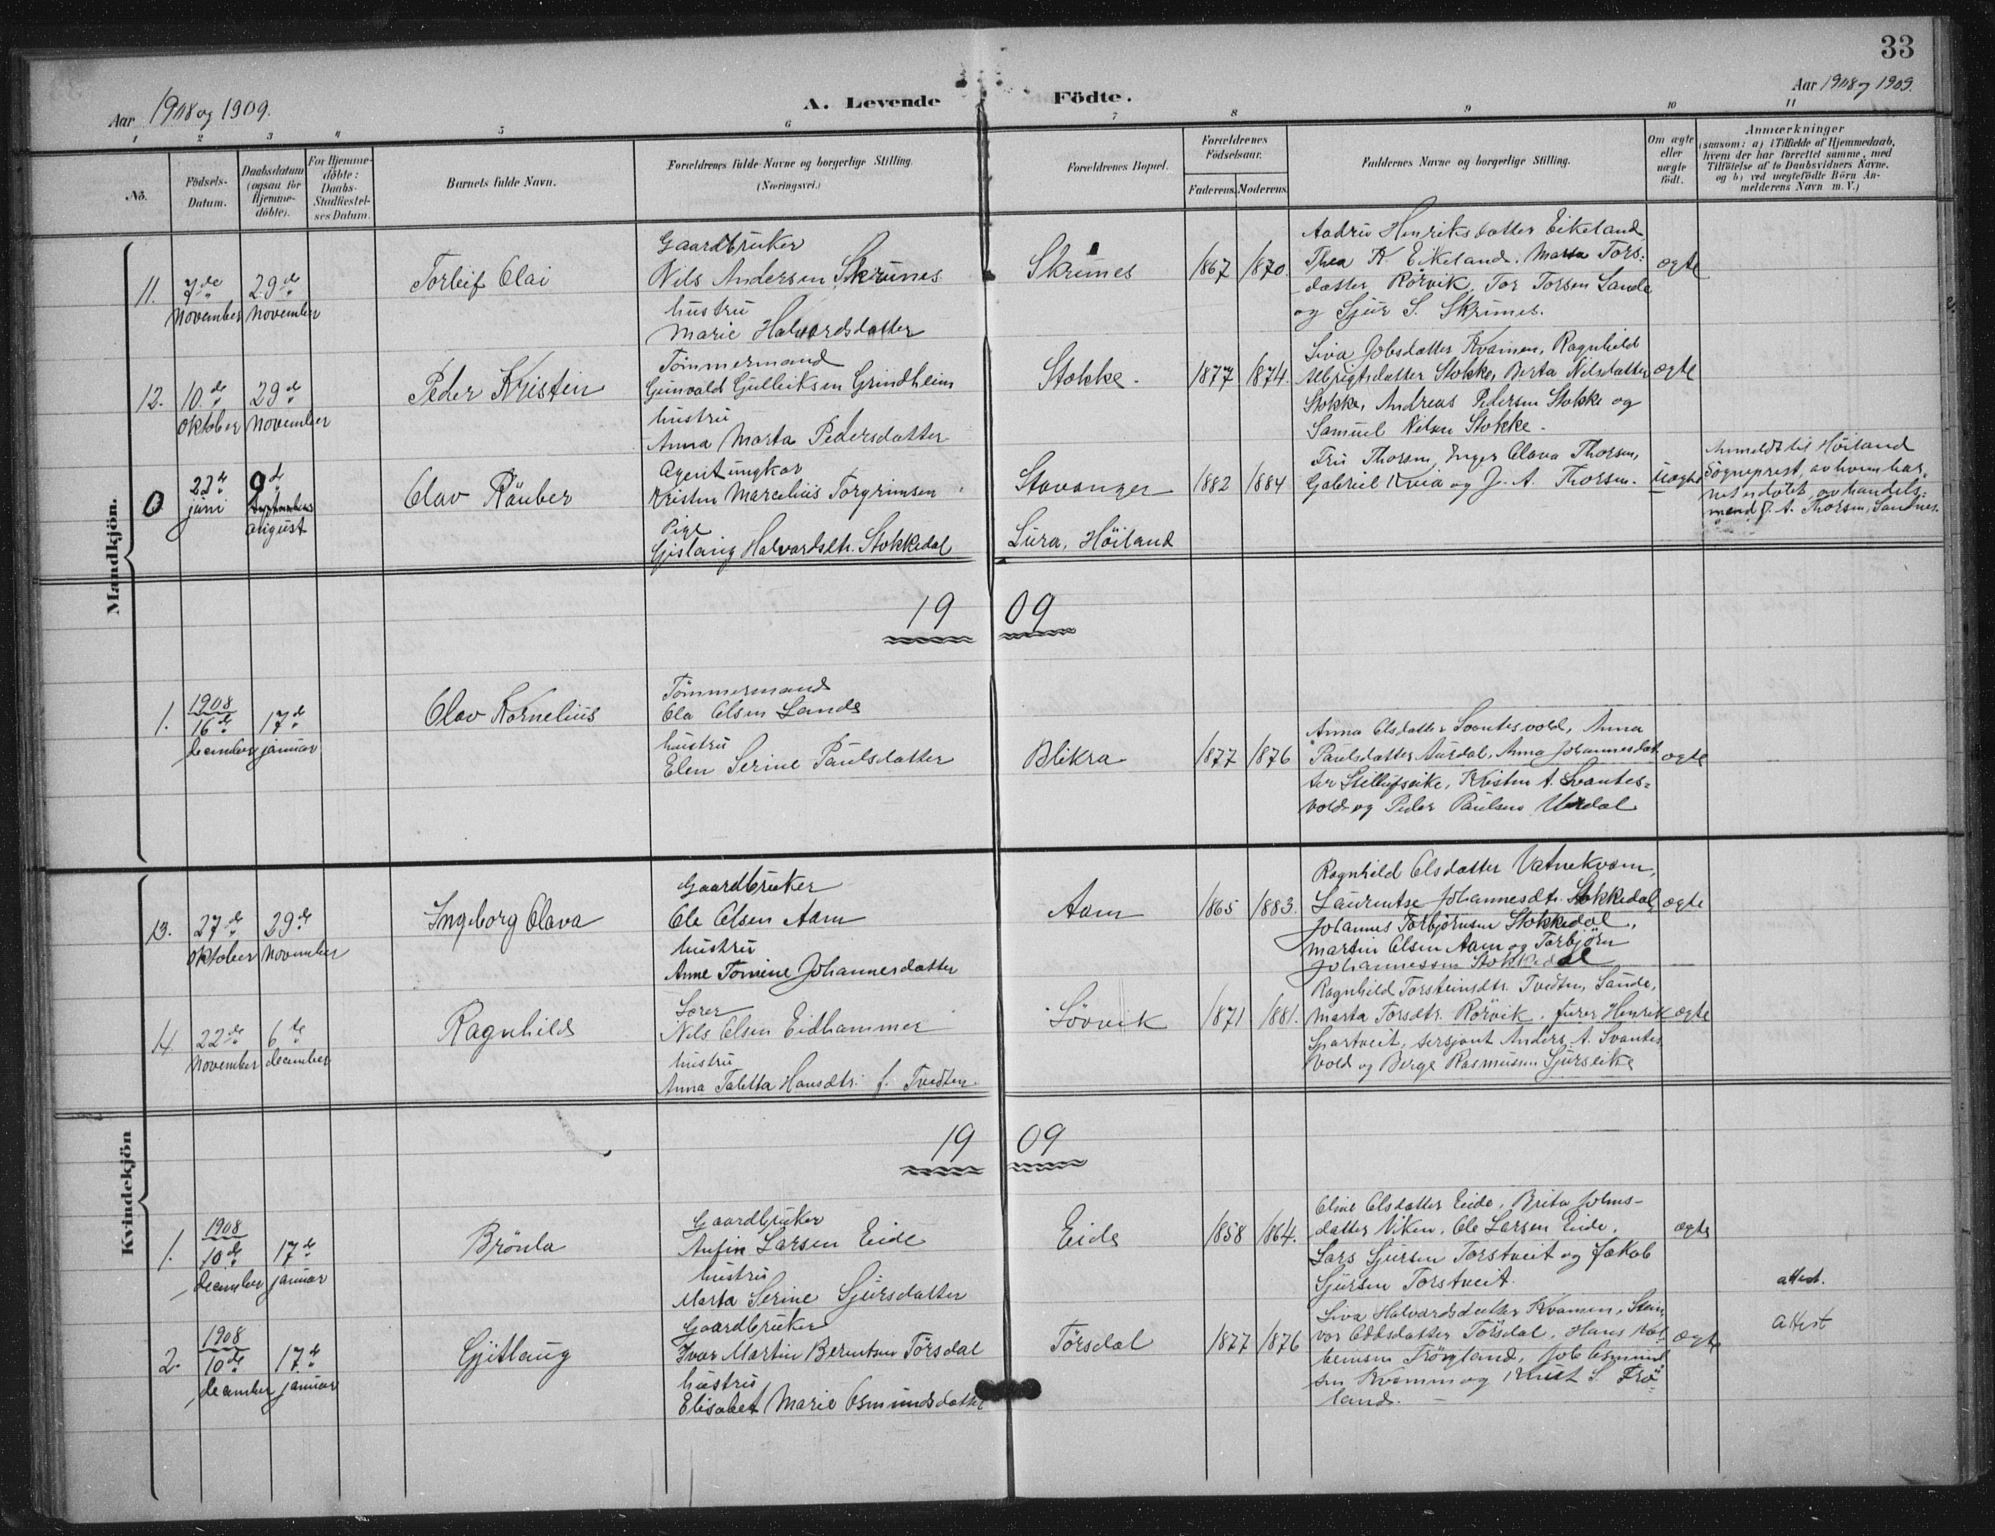 33
Aar 1908 og 1909.
A. Levende Födte.
Aar 1908 og 1909.
1 2 3 4 5 6 7 8 9 10 11
No.
Födsels-
Datum.
Daabsdatum
(ogsaa for
Hjemme-
döbte).
For Hjemme-
döbte:
Daabs-
Stadfæstel-
ses Datum.
Barnets fulde Navn.
Forældrenes fulde Navne og borgerlige Stilling.
(Næringsvei.)
Forældrenes Bopæl.
Forældrenes
Födselsaar.
Faderens. Moderens.
Faddernes Navne og borgerlige Stilling.
Om ægte
eller
uægte
født.
Anmærkninger
(saasom: a) i Tilfælde af Hjemmedaab,
hvem der har forrettet samme, med
Tilföielse af to Daabsvidners Navne,
og b) ved uægtefödte Börn An-
melderens Navn m. V.)
Mandkjön.
11.
7de
november
29de
november
Torleif Olai
Gaardbruker
Nils Andersen Skrunes
hustru
Marie Halvardsdatter
Skrunes
1867
1870.
Henriksdatter Eikeland
Thea K. Eikeland. Marta Tors-
datter Rörvik, Tor Torsen Sande
og Sjur S. Skrunes.
ægte
12.
10de
oktober
29de
november
Peder Kristen
Tömmermand
Gunvald Gulleiksen Grindheim
hustru
Anna Marta Pedersdatter
Stokke.
1877
1874.
Siva Jobsdatter Kvamen, Ragnhild
Stokke, Berta Nilsdatter
Stokke, Andreas Pedersen Stokke og
Samuel Nilsen Stokke.
ægte
0
22de
juni
9de
august
Olav Räuber
Agent ungkar
Kristen Marcelius Torgrimsen
Pige
Gislaug Halvardsdtr. Stokkedal
Stavanger
Lura, Höiland
1882
1884
Fru Thorsen, Inger Olava Thorsen,
Gabriel Kvia og J. A. Thorsen.
uægte
Anmeldt til Höiland
sogneprest, av hvem bar-
net er döbt, av handels-
mand J. A. Thorsen, Sandnes.
1909
1.
1908
16de
december
17de
januar
Olav Kornelius
Tömmermand
Ola Olsen Sande
hustru
Elen Serine Paulsdatter
Blikra
1877
1876
Anna Olsdatter Svantesvold, Anna
Paulsdatter Aurdal, Anna Johannesdat-
ter Stellufseike, Kristen A. Svantes-
vold og Peder Paulsen Urdal
ægte
Kvindekjön
13.
27de
oktober
29de
november
Ingeborg Olava
Gaardbruker
Ole Olsen Aam
hustru
Anne Tomine Johannesdatter
Aam
1865
1883.
Ragnhild Olsdatter Vatnekvam,
Laurentse Johannesdtr. Stokkedal,
Johannes Torbjörnsen Stokkedal,
Martin Olsen Aam og Torbjörn
Johannessen Stokkedal
ægte
14.
22de
november
6te
december
Ragnhild
Lærer
Nils Olsen Eidhammer
hustru
Anna Taletta Hansdtr. f. Tvedten.
Lövvik
1871
1881.
Ragnhild Torsteinsdtr. Tvedten, Sande,
Marta Torsdtr. Rörvik, furer Henrik
Spartveit, sersjant Anders A. Svantes-
vold og Berge Rasmussen Sjurseike
ægte
1909
1.
1908
10de
december
17de
januar
Brönla
Gaardbruker
Anfin Larsen Eide
hustru
Marta Serine Sjursdatter
Eide
1858
1864.
Oline Olsdatter Eide, Brita Johns-
datter Viken, Ole Larsen Eide,
Lars Sjursen Torstveit og Jakob
Sjursen Torstveit.
ægte
attest.
2.
1908
10de
december
17de
januar
Gjitlaug
Gaardbruker
Ivar Martin Berntsen Törsdal
hustru
Elisabet Marie Osmundsdatter
Törsdal
1877
1876
Siva Halvardsdatter Kvamen, Sten-
vor Oddsdatter Törsdal, Hans
Job Osmund-
sen Kvammen og Knut S. Frö-
land.
ægte
attest